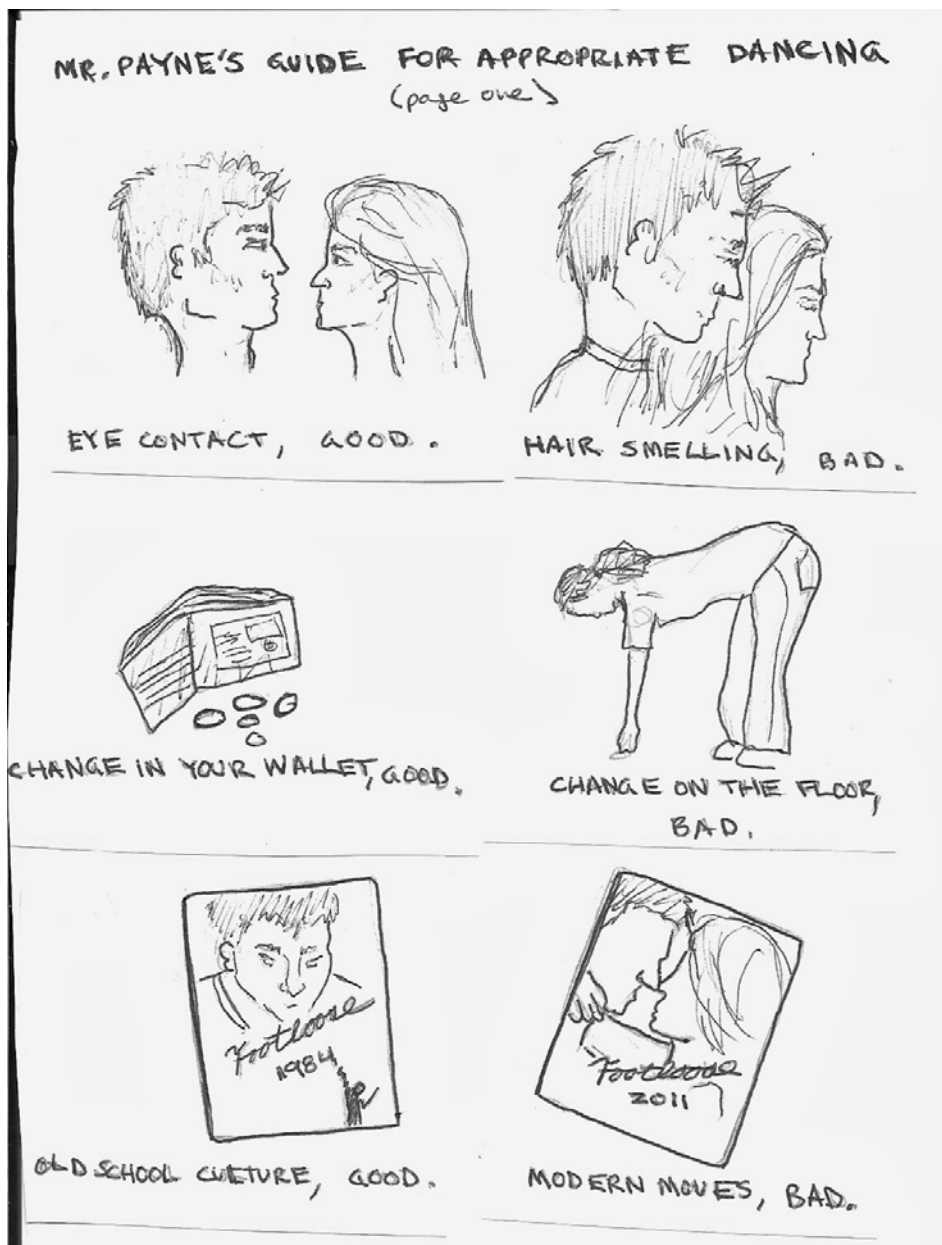 MR. PAYNE'S GUIDE FOR APPROPRIATE DANCING
(page one)
EYE CONTACT, GOOD.
HAIR SMELLING, BAD.
CHANGE IN YOUR WALLET, GOOD.
CHANGE ON THE FLOOR,
BAD.
Footloose
1984
OLD SCHOOL CULTURE, GOOD.
Footloose
2011
MODERN MOVES, BAD.